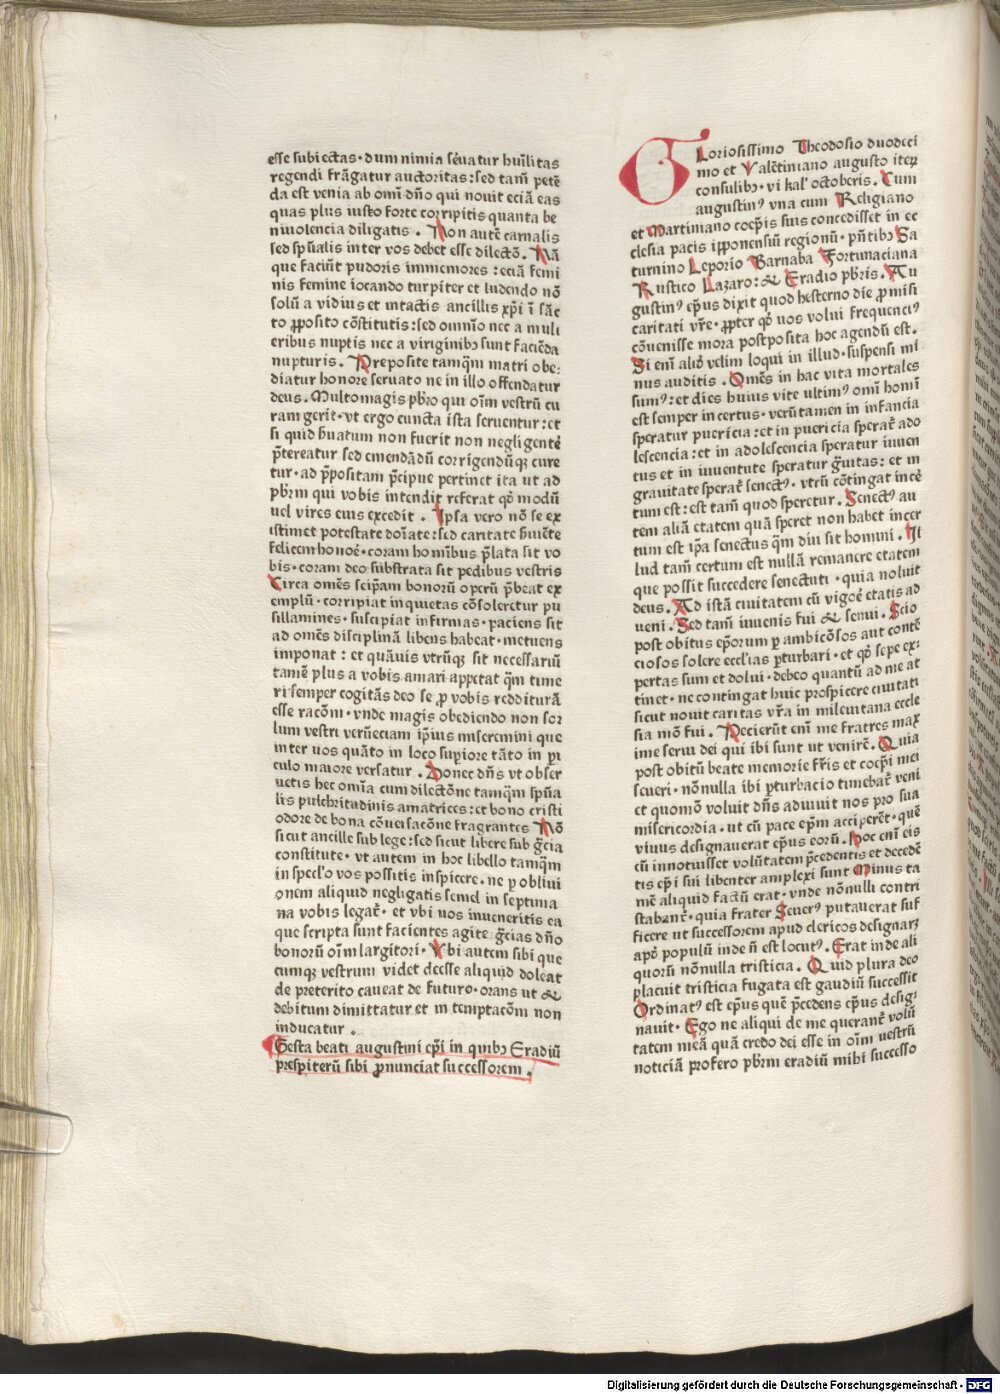 esse subiectas · dum nimia sẽuatur hũilitas
regendi frãgatur auctoritas : sed tam̃ petẽ
da est venia ab om̃i dño qui nouit eciã eas
quas plus iusto forte corripitis quanta be
niuolencia diligatis . Non autẽ carnalis
sed sp̃ualis inter vos debet esse dilectõ . Nã
que faciũt pudoris immemores : eciã femi
nis femine iocando turpiter et ludendo nõ
solũ a vidius et intactis ancillis xp̃i ĩ sãc
to ꝓposito cõstitutis : sed omnĩo nec a muli
eribus nuptis nec a virginibus sunt faciẽda
nupturis . Preposite tamq̃m matri obe:
diatur honore seruato ne in illo offendatur
deus . Multomagis pb̃ro qui oĩm vestrũ cu
ram gerit · vt ergo cuncta ista seruentur : et
si quid ẜuatum non fuerit non negligentẽ
p̃tereatur sed emendãdũ corrigendũqȝ cure
tur · ad p̃positam p̃cipue pertinet ita ut ad
pb̃rm qui vobis intendit referat qđ modũ
uel vires eius excedit . Ipsa vero nõ se ex
istimet potestate doĩate : sed caritate ẜuiẽte
felicem honoẽ · coram homĩbus p̃lata sit vo
bis · coram deo substrata sit pedibus vestris
Circa omẽs seip̃am bonorũ operũ p̃beat ex
emplũ · corripiat inquietas cõsoleretur pu
sillamines · suscipiat infirmas · paciens sit
ad omẽs disciplinã libens habeat · metuens
imponat : et quãuis vtrũqȝ sit necessariũ
tamẽ plus a vobis amari appetat q̃m time
ri semper cogitãs deo se ꝓ vobis redditurã
esse racõm · vnde magis obediendo non sor
lum vestri verũeciam ip̃ius miseremini que
inter uos quãto in loco supiore tãto in ꝑi
culo maiore versatur . Donec dñs vt obser
uetis hec omĩa cum dilectõne tamq̃m sp̃ua
lis pulchritudinis amatrices : et bono cristi
odore de bona cõuersacõne fragrantes Nõ
sicut ancille sub lege : sed sicut libere sub g̃cia
constitute · vt autem in hoc libello tamq̃m
in specl'o vos possitis inspicere · ne ꝑ obliui
onem aliquid negligatis semel in septima
na vobis legat̃ · et vbi uos inueneritis ea
que scripta sunt facientes agite g̃cias dño
bonorũ oĩm largitori · Vbi autem sibi que
cumqȝ vestrum videt deesse aliquid doleat
de preterito caueat de futuro · orans ut &
debitum dimittatur et in temptacõm non
inducatur .
Gesta beati augustini ep̃i in quibȝ Eradiũ
prespiterũ sibi ꝓnunciat successorem .
Gloriosissimo Theodosio duodeci
mo et Valẽtiniano augusto iteꝝ
consulibȝ · vi kal' octobris . Cum
augustin⁹ vna cum Religiano
et Martiniano coep̃is suis concedisset in ec
clesia pacis ipponensiũ regionũ · pñtibȝ Sa
turnino Leporio Barnaba Fortunaciana
Rustico Lazaro : & Eradio pb̃ris . Au
gustin⁹ ep̃us dixit quod hesterno die ꝓmisi
caritati vr̃e · ꝓpter qđ uos volui frequenci⁹
cõuenisse mora postposita hoc agendũ est .
Si enĩ aliđ velim loqui in illud · suspensi mi
nus auditis . Omẽs in hac vita mortales
sum⁹ : et dies huius vite ultim⁹ omĩ homĩ
est semper incertus · verũtamen in infancia
speratur puericia : et in puericia sperat̃ ado
lescencia : et in adolescencia speratur iuuen
tus et in iuuentute speratur g̃uitas : et in
grauitate sperat̃ senect⁹ · vtrũ cõtingat incẽ
tum est : est tam̃ quod speretur . Senect⁹ au
tem aliã etatem quã speret non habet incer
tum est ip̃a senectus q̃m diu sit homini . Il
lud tam̃ certum est nullã remanere etatem
que possit succedere senectuti · quia noluit
deus . Ad istã ciuitatem cũ vigoẽ etatis ad
ueni . Sed tam̃ iuuenis fui & senui . Scio
post obitus ep̃orum ꝑ ambicõsos aut contẽ
ciosos solere eccl'ias ꝑturbari · et qđ sepe ex:
pertas sum et dolui · debeo quantũ ad me at
tinet · ne contingat huic prospicere ciuitati
sicut nouit caritas vr̃a in mileuitana eccle
sia mõ fui . Pecierũt enĩ me fratres max
ime serui dei qui ibi sunt ut venirẽ . Quia
post obitũ beate memorie fr̃is et coep̃i mei
seueri · nõnulla ibi ꝑturbacio timebat̃ veni
et quomõ voluit dñs adiuuit nos pro sua
misericordia · ut cũ pace ep̃m acciperẽt · quẽ
viuus designauerat ep̃us eorũ . Hoc enĩ eis
cũ innotuisset volũtatem p̃cedentis et decedẽ
tis ep̃i sui libenter amplexi sunt Minus ta
mẽ aliquid factũ erat · vnde nõnulli contri
stabant̃ · quia frater Seuer⁹ putauerat suf
ficere ut successorem apud clericos designarȝ
apđ populũ inde ñ est locut⁹ . Erat inde ali
quorũ nõnulla tristicia . Quid plura deo
placuit tristicia fugata est gaudiũ successit
Ordinat⁹ est ep̃us quẽ p̃cedens ep̃us desig:
nauit · Ego ne aliqui de me querant̃ volũ
tatem meã quã credo dei esse in oĩm uestrũ
noticiã profero pb̃rm eradiũ mihi successo
Digitalisierung gefördert durch die Deutsche Forschungsgemeinschaft - DFG